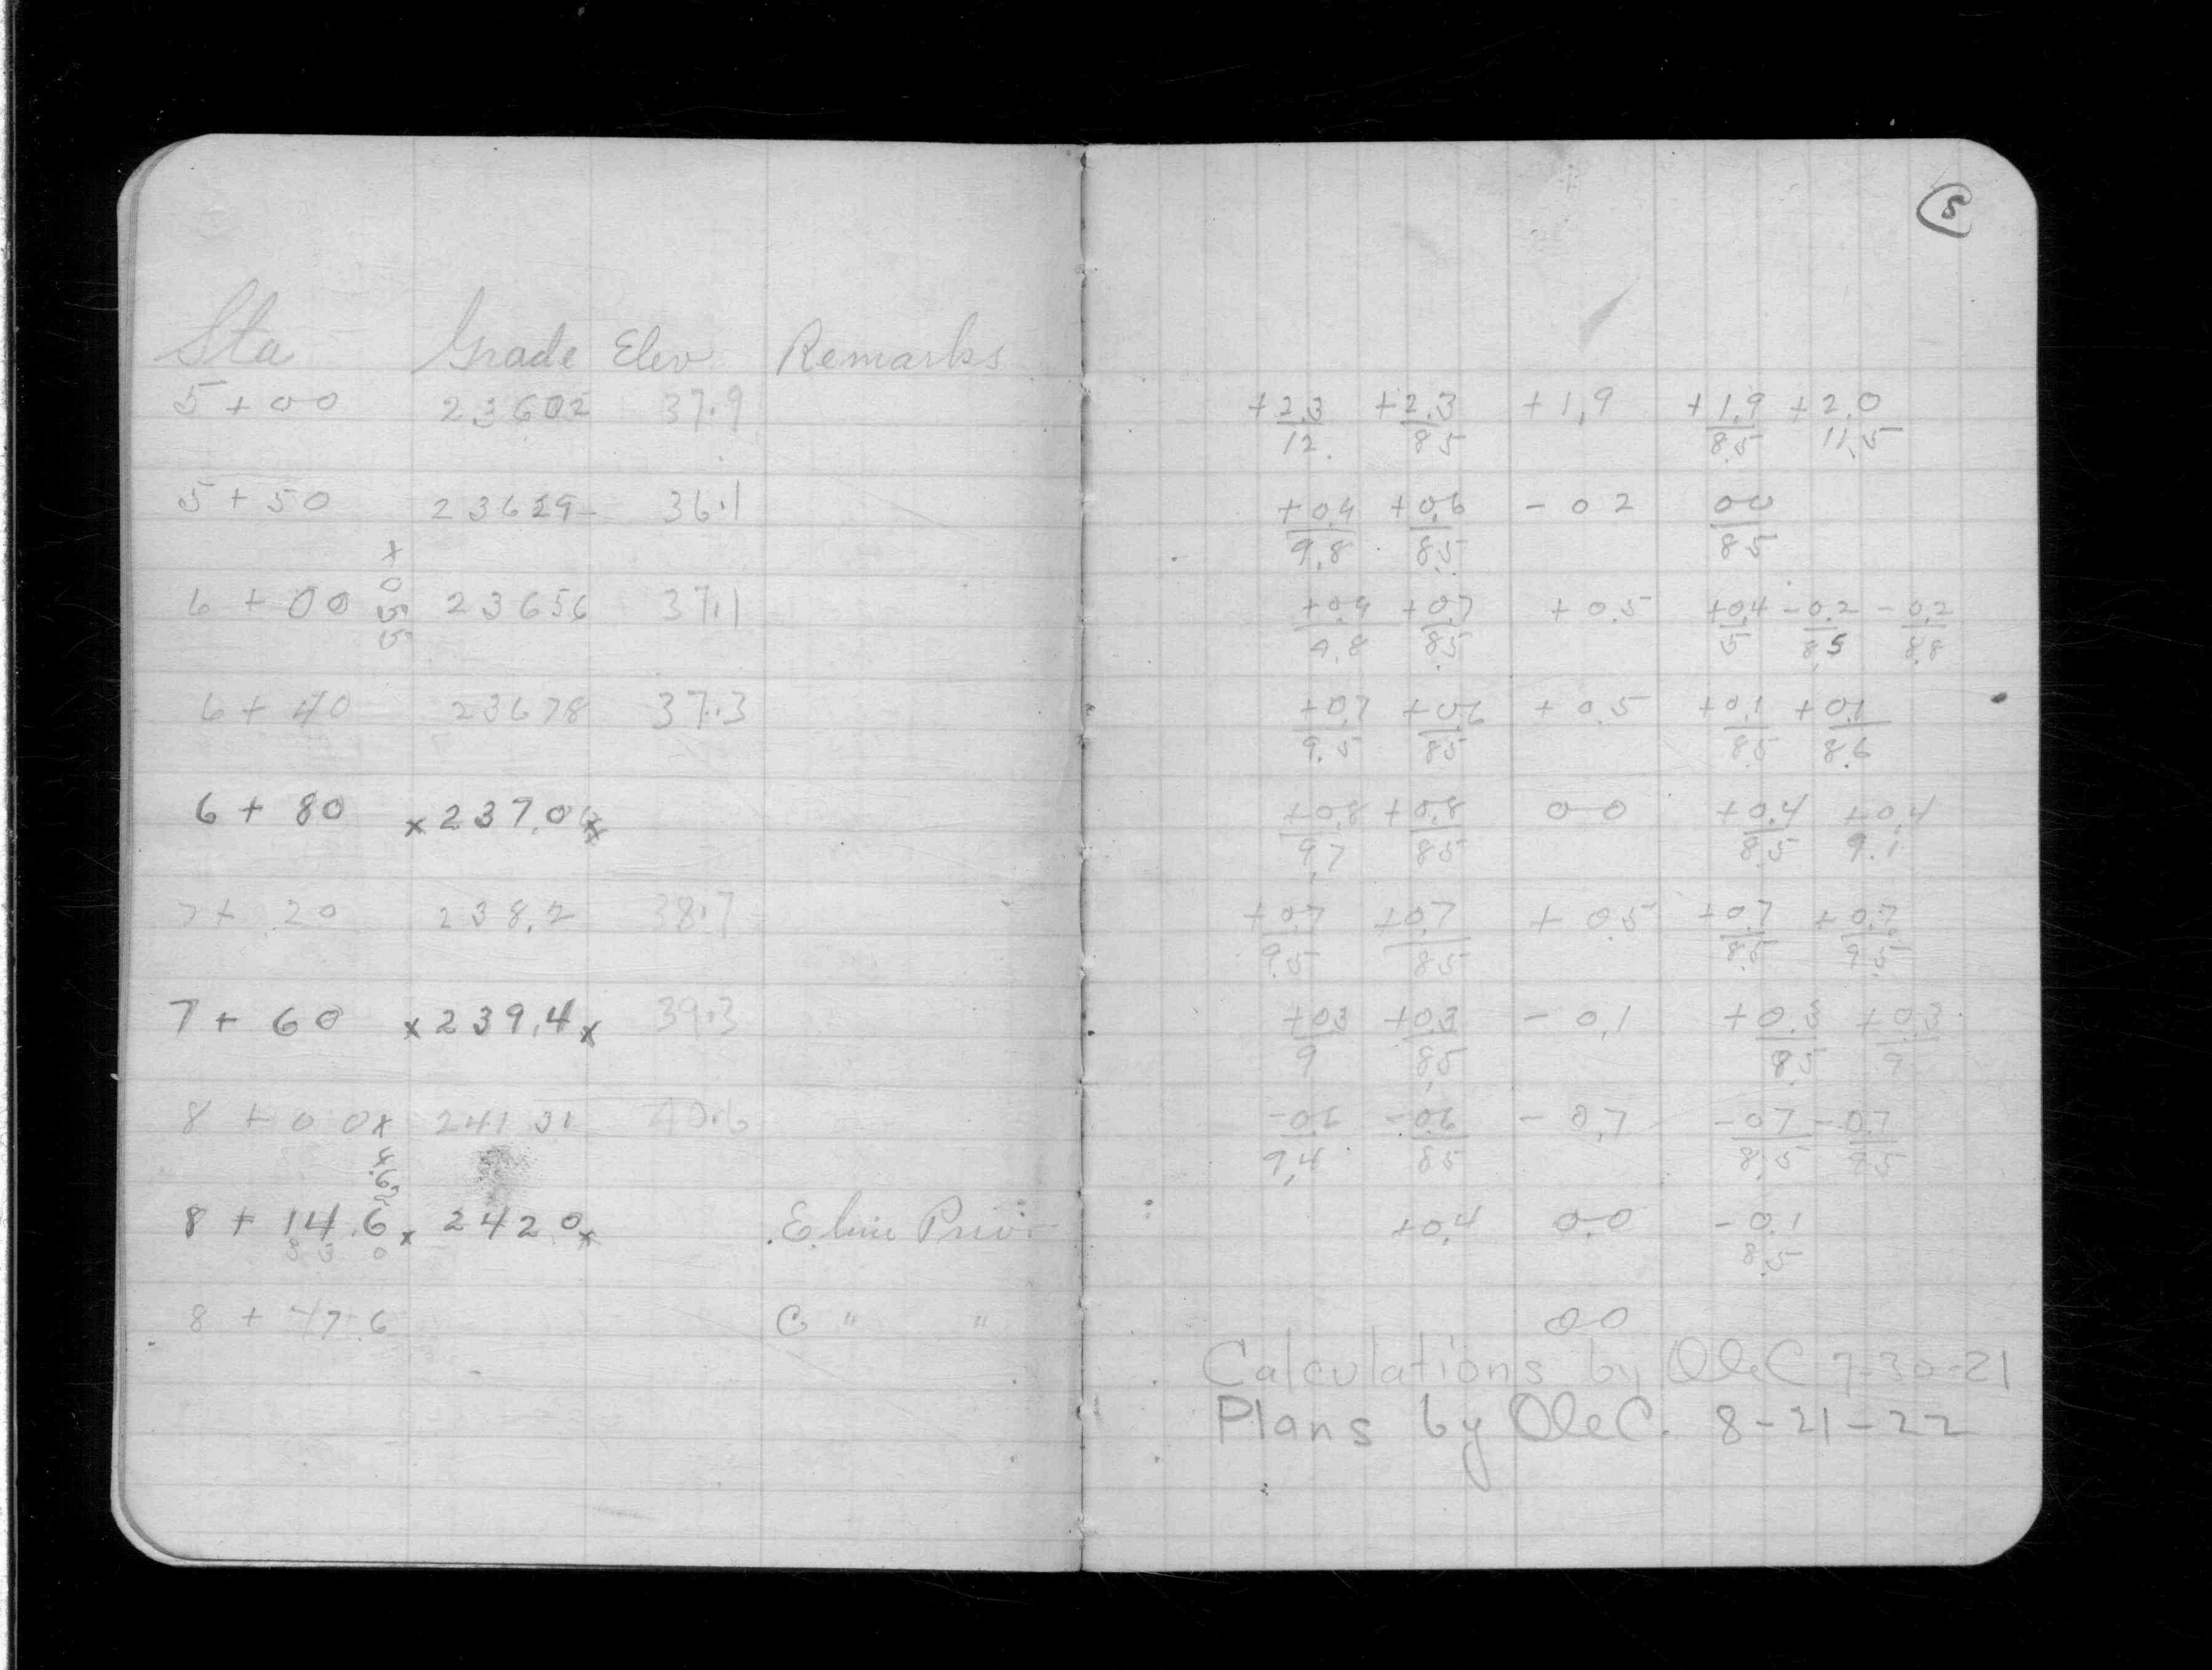 5
Sta Grade Elev Remarks
5+00 23602 37.9 +2.3/12. +2.3/8.5 +1.9 +1.9/8.5 +2.0/11.5
5+50 23629 36.1 +0.4/9.8 +0.6/8.5 -0.2 00/8.5
+0.55
6+00 23656 37.1 +0.9/9.8 +0.7/8.5 +0.5 +0.4/5 -0.2/8.5 -0.2/8.8
6+40 23678 37.3 +0.7/9.5 +0.6/8.5 +0.5 +0.1/8.5 +0.1/8.6
6+80 x237.0 x +0.8/9.7 +0.8/8.5 00 +0.4/8.5 +0.4/9.1
7+20 238.2 38.7 +0.7/9.5 +0.7/8.5 +0.5 +0.7/8.5 +0.7/9.5
7+60 x239.4x 39.3 +0.3/9 +0.3/8.5 -0.1 +0.3/8.5 +0.3/9
8+00x 241 31 40.6 -0.6/9.4 -0.6/8.5 -0.7 -0.7/8.5 -0.7/9.5
8+14.6x 242 0x E. line Priv. +0.4 0.0 -0.1/8.5
33 0
8+47.6 C " " 0.0
Calculations by OleC 7-30-21
Plans by OleC. 8-21-22